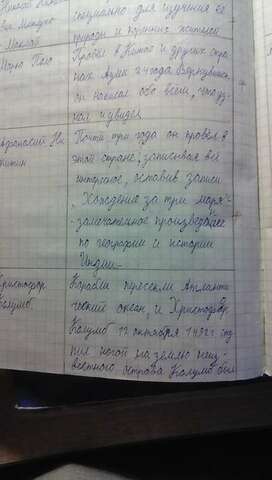 Николай
Миклухо
Маклай
специально для изучения её
природы и коренных жителей
Марко Поло
Пробыв в Китае и других стра
нах Азии 24 года вернувшись,
он написал обо всём, что уз
нал и увидел
Афанасий Ни
китин
Почти три года он провел в
этой стране, записывая всё
интересное, оставив записи
"Хождение за три моря"-
-замечательное произведение
по географии и истории
Индии-
Христофор
Колумб
Корабли пересекли Атланти
ческий океан, и Христофор
Колумб 12 октября 1492 г. сту
пил ногой на землю неиз-
вестного острова. Колумб был